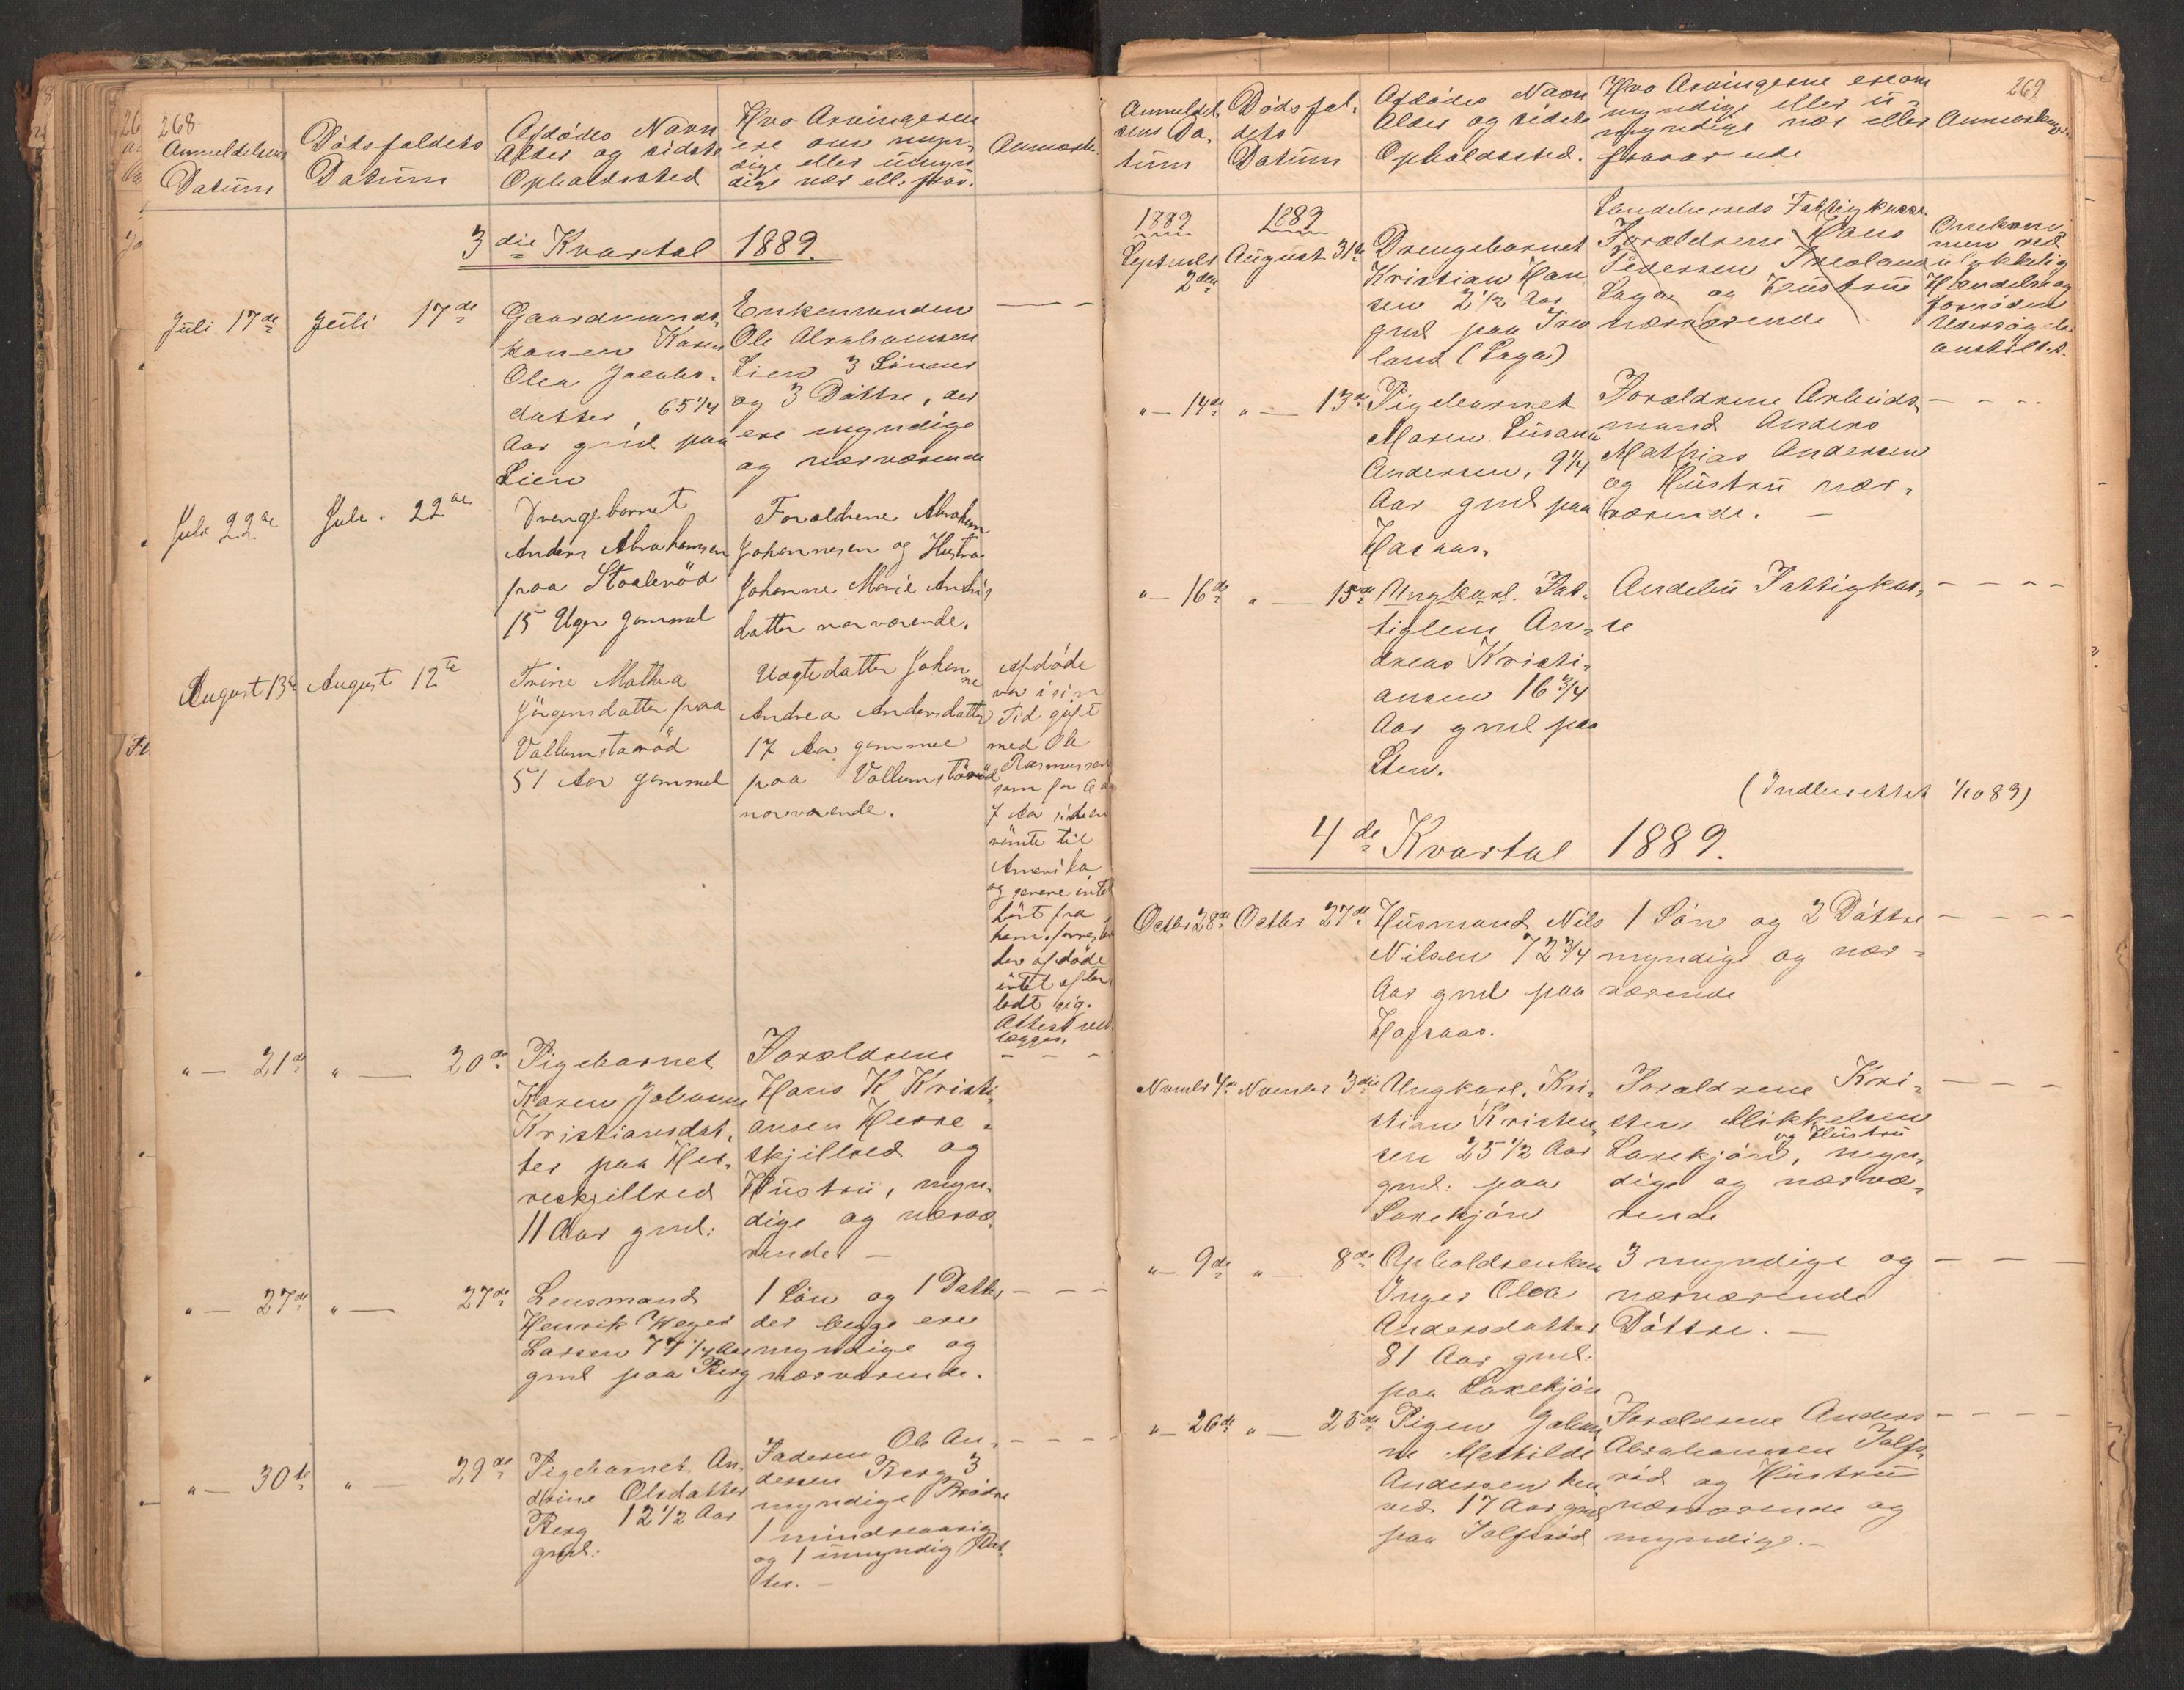 268
Anmeldelsens
Datum
Dödsfaldets
Datum
Afdödes Navn
Alder og sidste
Opholdssted
Hvo Arvingerne
ere om myn,
dige eller umyn
dige nær ell: frav.
Anmærk.
3die Kvartal 1889.
Juli 17de
Juli 17de
Gaardmands,
konen Karen
Olea Jacobs,
datter, 65 1/4
Aar gml paa
Lien
Enkemanden
Ole Abrahamsen
Lien 3 Sönner
og 3 Döttre, der
ere myndige
og nærværende
Juli 22de
Juli. 22de
Drengebarnet
Anders Abrahamsen
paa Stoaleröd
15 Uger gammel
Forældrene Abraham
Johannesen og Hustru
Johanne Marie Anders
datter nærværende.
August 13de
August 12te
Trine Mathea
Jörgensdatter paa
Vallumstaröd
51 Aar gammel
Uægtedatter Johan
ne
Andrea Andersdatter
17 Aar gammel
paa Vallumstaröd
nærværende.
Afdöde
var i sin
Tid gift
med Ole
Rasmussen
som for 6 a
7 Aar siden
römte til
Amerika
og senere intet
hört fra
ham,
har afdöde
intet efter
ladt sig.
Attest ved
lægges.
" — 21de
" — 20de
Pigebarnet
Karen Johanne
Kristiansdat,
ter paa Her,
reskjillred
11 Aar gml:
Forældrene
Hans K Kristi,
ansen Herre,
skjillred og
Hustru, myn,
dige og nærvæ
rende. —
" — 27de
" — 27de
Lensmand
Henrik Weger
Larsen 77 1/4 Aar
gml paa Berg
1 Sön og 1 Datter
der begge ere
myndige og
nærværende.
" — 30te
" — 29de
Pigebarnet An,
drine Olsdatter
Berg 12 1/2 Aar
gml:
Faderen Ole An,
dersen Berg 3
myndige Brödre
1 mindreaarig
og 1 umyndig Sös,
ter. —
269
Anmeldel,
sens Da,
tum
Dödsfal,
dets
Datum
Afdödes Navn
Alder og sidste
Opholdssted.
Hvo Arvingerne ere om
myndige eller u,
myndige nær eller
fraværende
Anmærkning.
1889
Septembr
2den
1889
August 31te
Drengebarnet
Kristian Han
sen 2 1/2 Aar
gml paa Treo
land (Saga)
Sandeherreds Fattigkasse.
Forældrene Hans
Pedersen Treoland
Saga og Hustru
nærværende
Omkom
men ved
ulykkelig
Hændelse og
fornöden
Undersögelse
anstillet.
" — 14de
" — 13de
Pigebarnet
Maren Susanne
Andersen, 9 1/4
Aar gml paa
Hasaas.
Forældrene Arbeids,
mand Anders
Mathias Andersen
og Hustru nær,
værende. —
" — 16de
" — 15de
Ungkarl. Fat,
tiglem An,
dreas Kristi,
ansen 16 3/4
Aar gml paa
Sten.
Andebu Fattigkas,
se
(Indberettet 1/10 89)
4de Kvartal 1889.
Octbr 28de
Octbr 27de
Husmand Nils
Nilsen 72 3/4
Aar gml paa
Hasaas.
1 Sön og 2 Döttre
myndige og nær,
værende
Novmbr 4de
Novmbr 3die
Ungkarl. Kri,
stian Kristen,
sen 25 1/2 Aar
gml. paa
Saxekjön
Forældrene Kri,
sten Mikkelsen
og Hustru
Saxekjön, myn,
dige og nærvæ,
rende
" — 9de
" — 8de
Opholdsenken
Inger Olea
Andersdatter
81 Aar gml:
paa Saxekjön
3 myndige og
nærværende
Döttre. —
" — 26de
" — 25de
Pigen Johan
ne Mathilde
Andersen hen
ved 17 Aar gml
paa Jolfsröd
Forældrene Anders
Abrahamsen Jolfs,
röd og Hustru
nærværende og
myndige. —